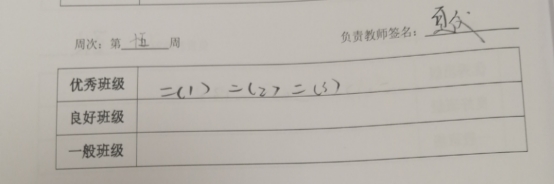 周次：第十五周 负责教师签名：
优秀班级 二(1) 二(2) 二(3)
良好班级
一般班级